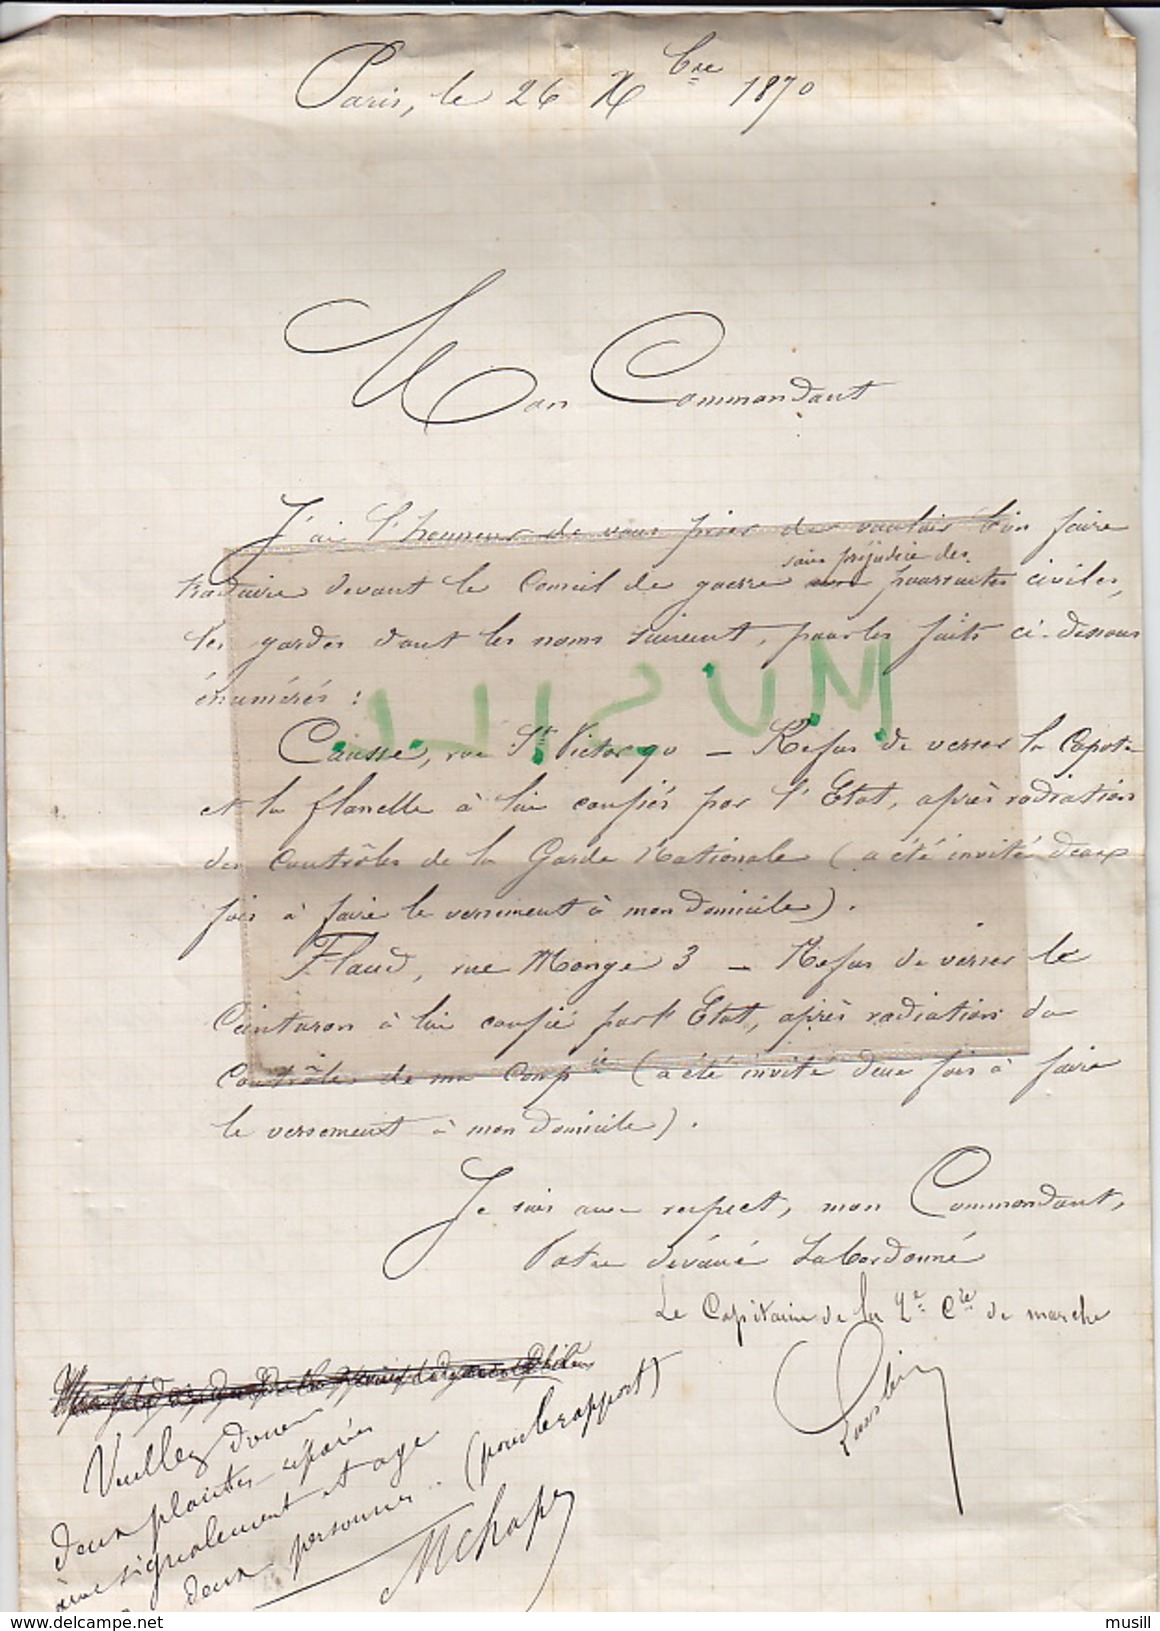 Paris, le 26 Xbre 1870
Mon Commandant
J'ai l'honneur de vous prier de vouloir bien faire
traduire devant le Conseil de guerre sans préjudice des poursuites civiles,
les gardes dont les noms suivent, pour les faits ci-dessous
énumérés :
Causse, rue St Victor 90 — Refus de verser la capote
et la flanelle à lui confiés par l'Etat, après radiation
des contrôles de la Garde Nationale (a été invité deux
fois à faire le versement à mon domicile).
Flaud, rue Monge 3 — Refus de verser le
Ceinturon à lui confié par l'Etat, après radiation du
Contrôle de ma Compie (a été invité deux fois à faire
le versement à mon domicile).
Je suis avec respect, mon Commandant,
Votre dévoué Subordonné
Le Capitaine de la 2e Cie de marche
Veuillez donner
deux plaintes séparées
avec signalement et age
deux personnes. (pour le rapport)
MChaper
MUSILL
delcampe.net
musill